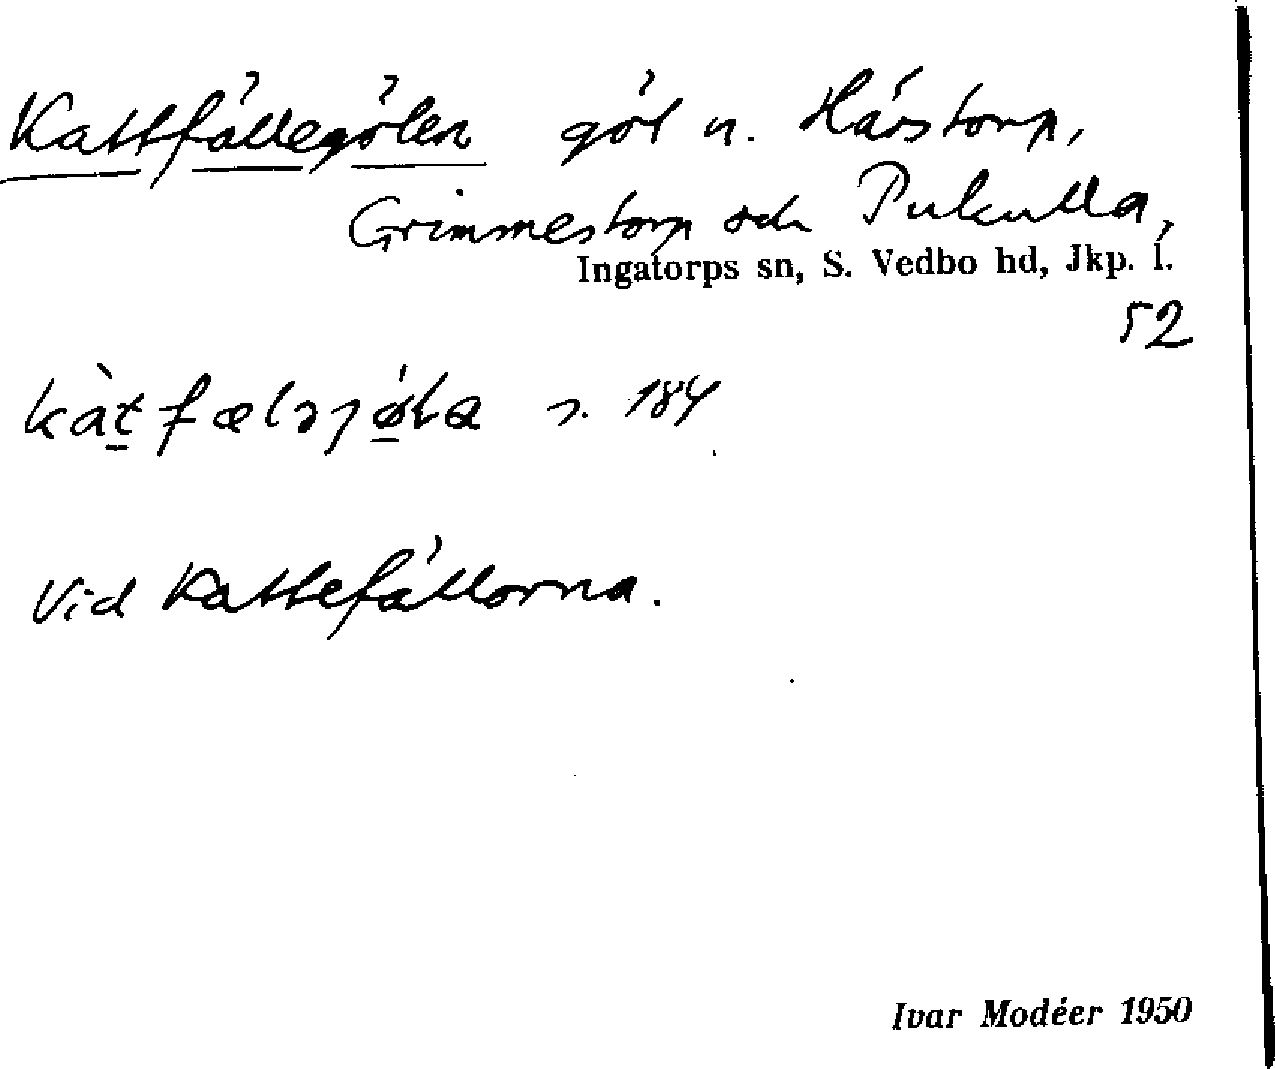 Kattfällegölen göl n. Hårstorp,
Grimmestorp och Pukulla,
Ingatorps sn, S. Vedbo hd, Jkp. l.
52
kàt̲fælɘjǿ̲la s. 184
Vid Kattefällorna.
Ivar Modéer 1950